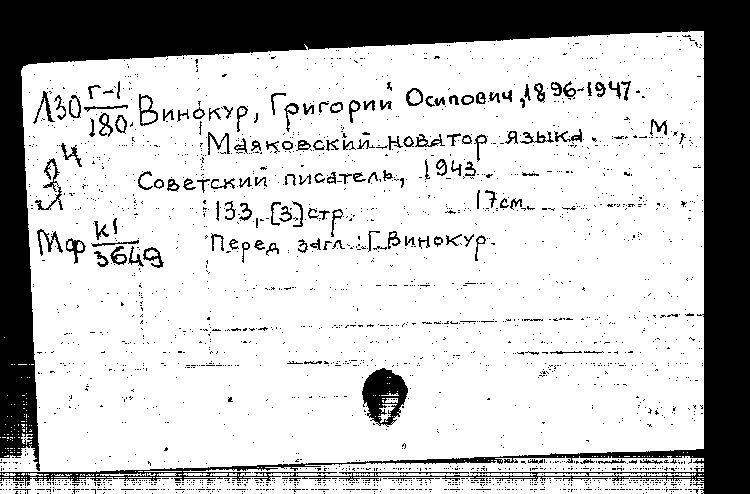 Л30 Г-1/180 Винокур, Григорий Осипович, 1896-1947.
Маяковский новатор языка. — М.,
Советский писатель, 1943.
133, [3] стр. 17 см.
Мф К1/3649 Перед загл.: Г. Винокур.